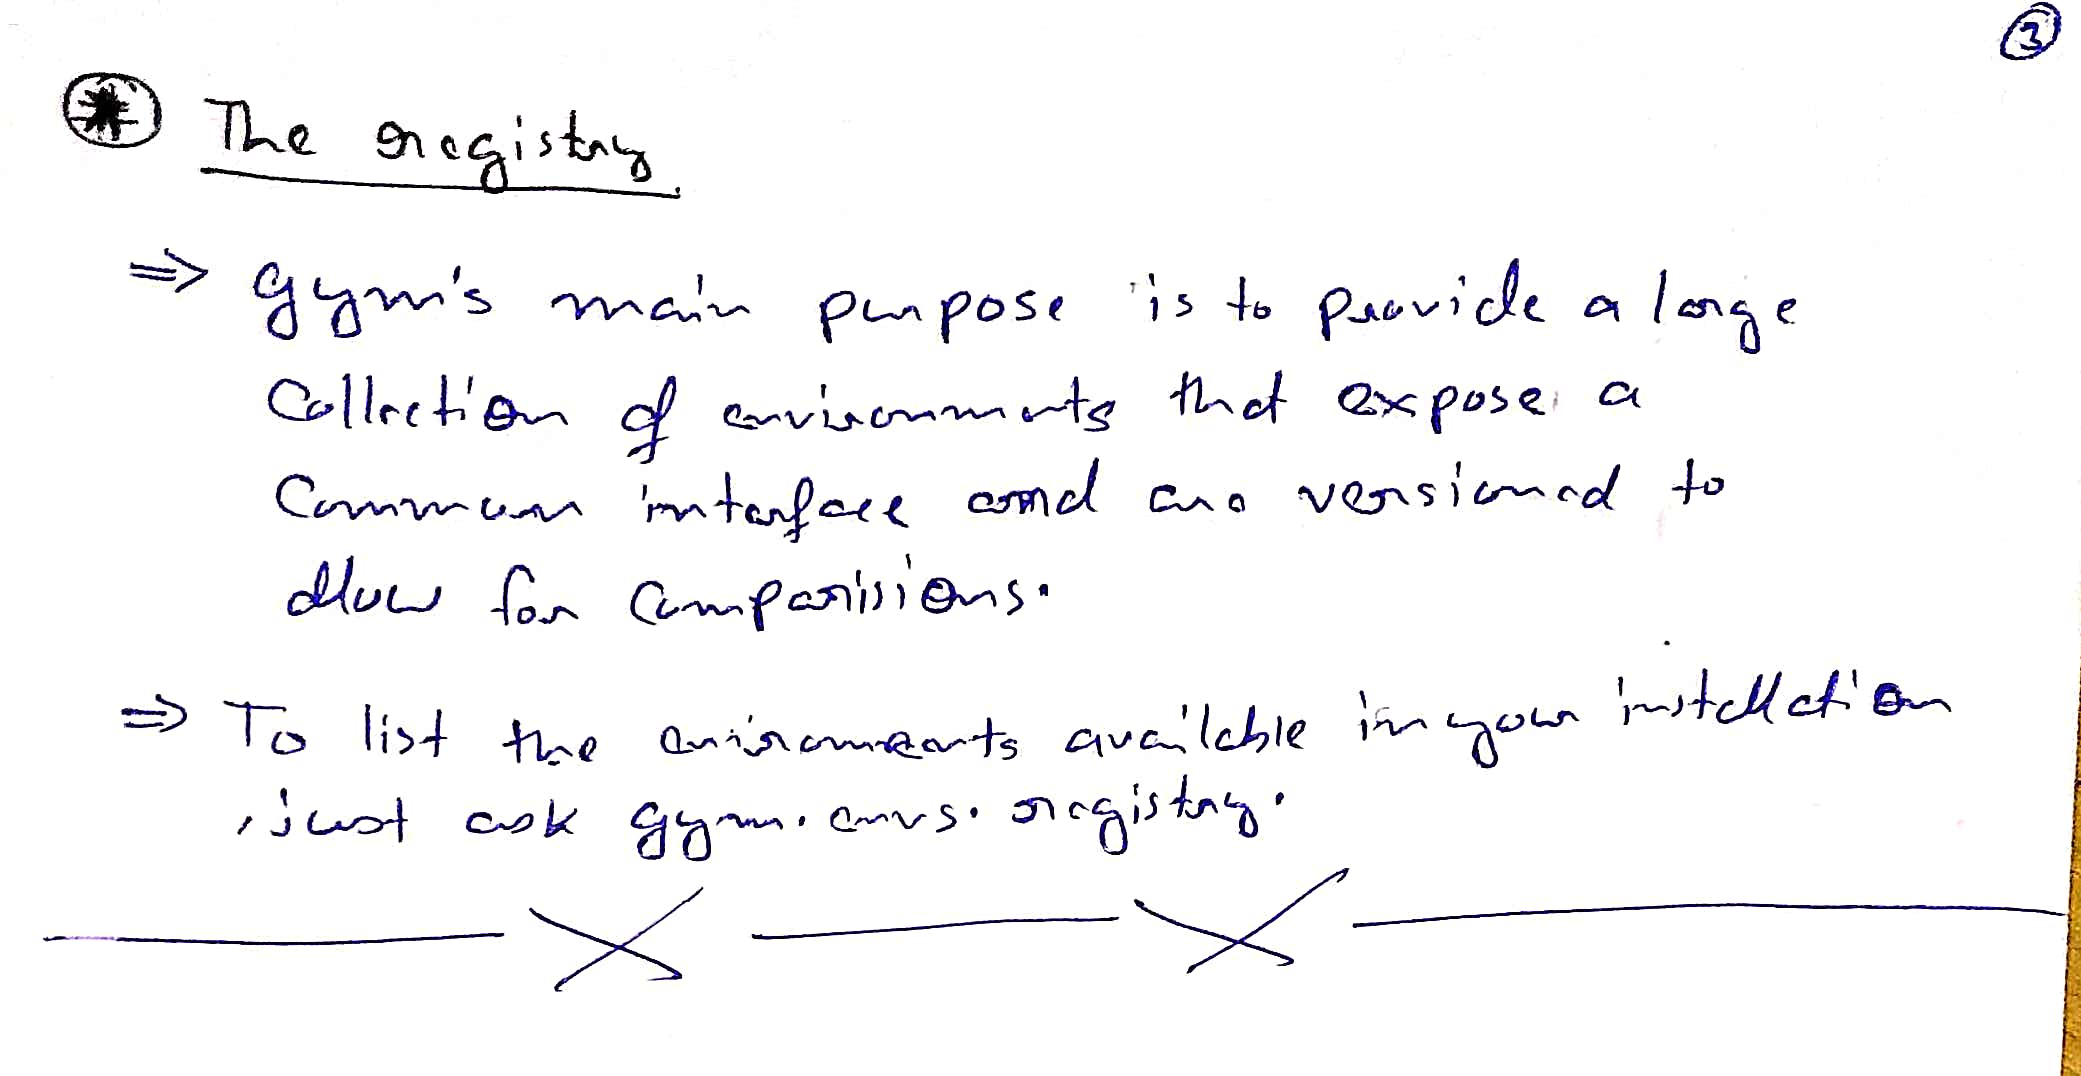 3
The registry
⇒ gym's main purpose is to provide a large
Collection of environments that expose a
Common interface and are versioned to
allow for comparisions.
⇒ To list the enviroments available in your installation
, just ask gym.envs.registry.